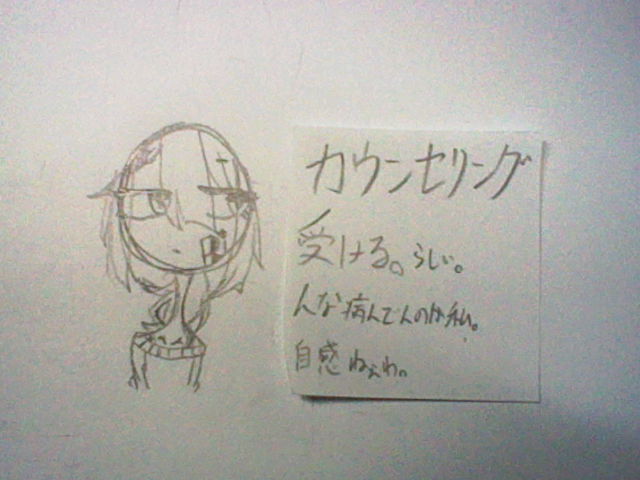 カウンセリング
受ける。らしい。
んな病んでんのか私。
自感ねぇわ。